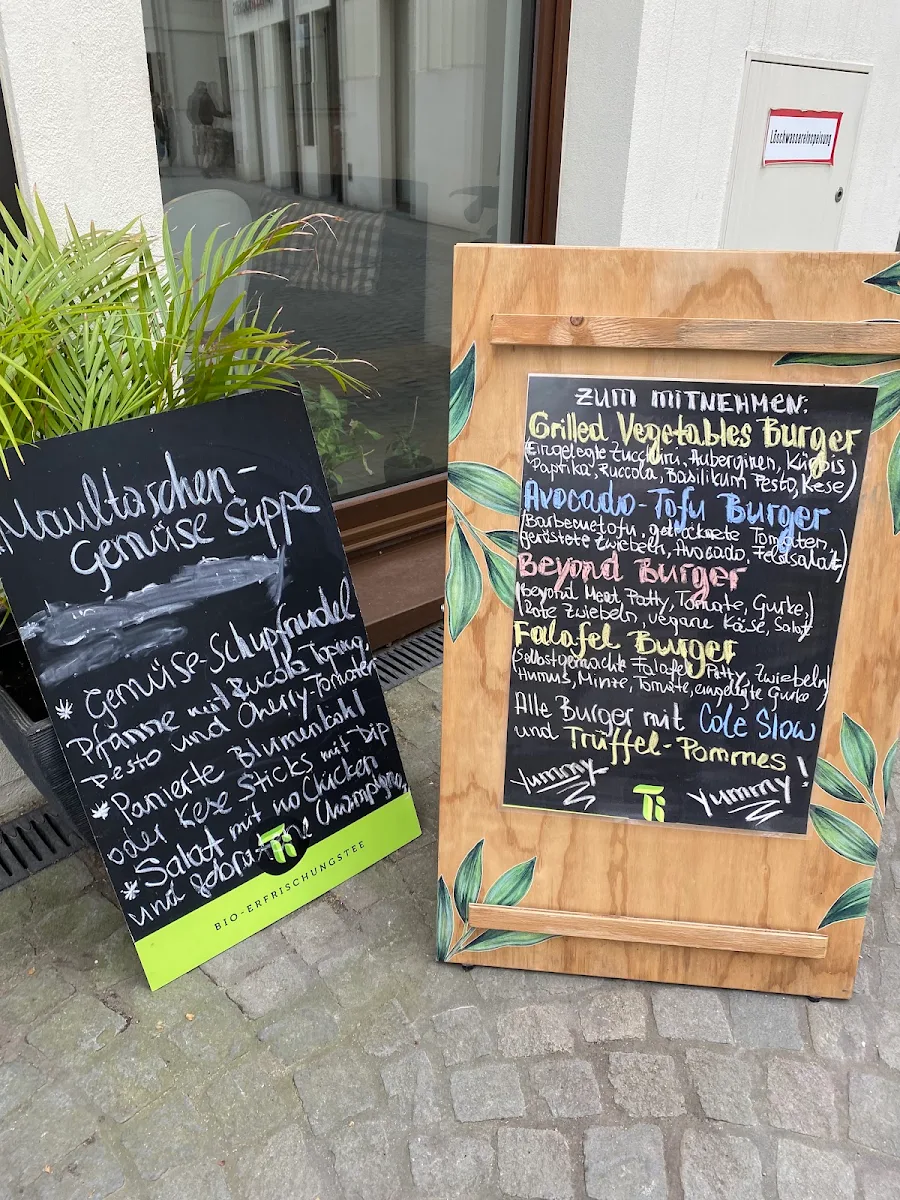 Löschwassereinspeisung
Maultaschen-
Gemüse Suppe
* Gemüse-Schupfnudel
Pfanne mit Rucola Topping,
Pesto und Cherry-Tomaten
* Panierte Blumenkohl
oder Kese Sticks mit Dip
* Salat mit no Chicken
und Champignons
Ti
BIO-ERFRISCHUNGSTEE
ZUM MITNEHMEN:
Grilled Vegetables Burger
(Eingelegte Zucchini, Auberginen, Kürbis
Paprika, Ruccola, Basilikum Pesto, Kese)
Avocado-Tofu Burger
getrocknete Tomaten,
geröstete Zwiebeln, Avocado, Feldsalat)
Beyond Burger
(Beyond Meat Patty, Tomate, Gurke,
Rote Zwiebeln, vegane Käse, Salat)
Falafel Burger
(Selbstgemachte Falafel Patty, Zwiebeln
Humus, Minze, Tomate, eingelegte Gurke)
Alle Burger mit Cole Slow
und Trüffel-Pommes
Yummy Ti Yummy!